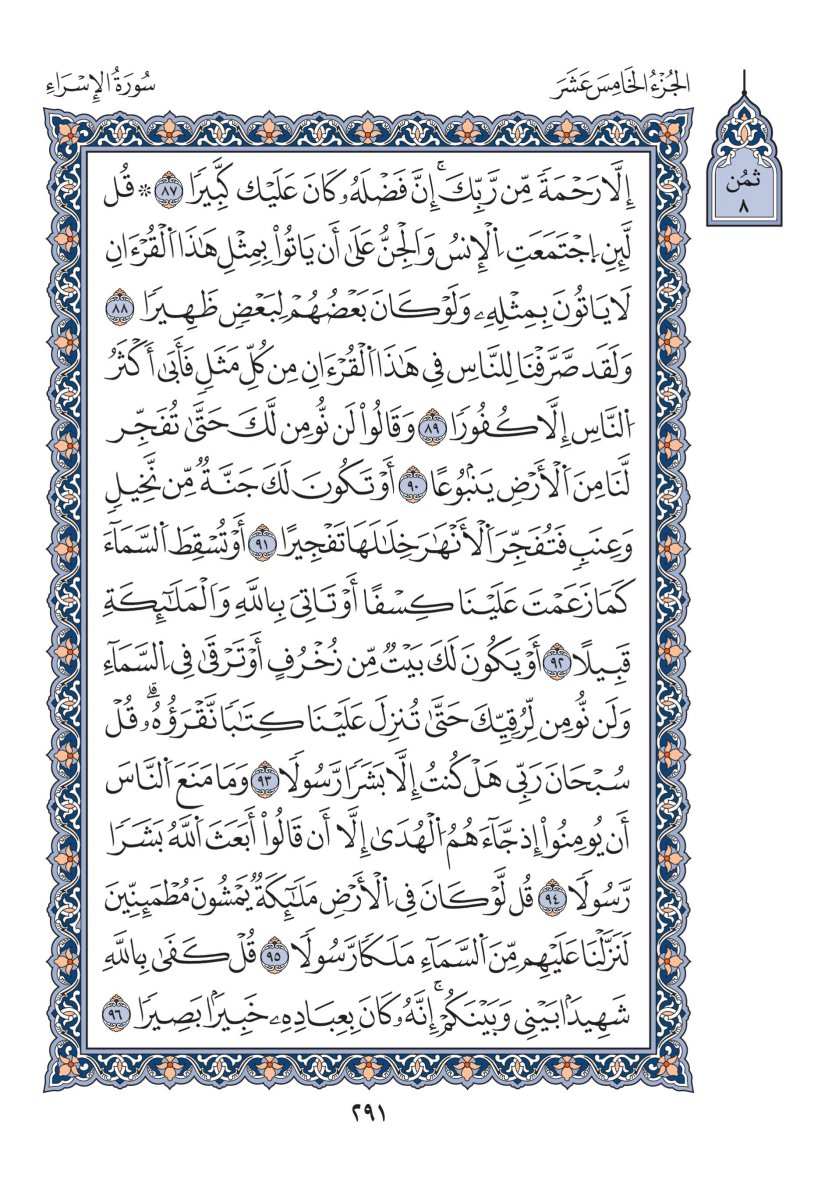 الجُزْءُ الخَامِسَ عَشَرَ
سُورَةُ الإِسْرَاءِ
ثُمُن
٨
إِلَّا رَحْمَةً مِّن رَّبِّكَۚ إِنَّ فَضْلَهُۥ كَانَ عَلَيْك كَّبِيرًا ٨٧ * قُل
لَّئِنِ اِجْتَمَعَتِ اِ۬لْإِنسُ وَالْجِنُّ عَلَىٰ أَن يَاتُواْ بِمِثْلِ هَٰذَا اَ۬لْقُرْءَانِ
لَا يَاتُونَ بِمِثْلِهِۦ وَلَوْ كَانَ بَعْضُهُمْ لِبَعْضٍ ظَهِيرًا ٨٨
وَلَقَد صَّرَّفْنَا لِلنَّاسِ فِي هَٰذَا اَ۬لْقُرْءَانِ مِن كُلِّ مَثَلٍ فَأَبَىٰ أَكْثَرُ
اُ۬لنَّاسِ إِلَّا كُفُورًا ٨٩ وَقَالُواْ لَن نُّومِن لَّكَ حَتَّىٰ تُفَجِّر
لَّنَا مِنَ اَ۬لْأَرْضِ يَنۢبُوعًا ٩٠ أَوْ تَكُونَ لَكَ جَنَّةٌ مِّن نَّخِيلٍ
وَعِنَبٍ فَتُفَجِّرَ اَ۬لْأَنْهَٰرَ خِلَٰلَهَا تَفْجِيرًا ٩١ أَوْ تُسْقِطَ اَ۬لسَّمَآءَ
كَمَا زَعَمْتَ عَلَيْنَا كِسْفًا أَوْ تَاتِيَ بِاللَّهِ وَالْمَلَٰٓئِكَةِ
قَبِيلًا ٩٢ أَوْ يَكُونَ لَكَ بَيْتٌ مِّن زُخْرُفٍ أَوْ تَرْقَىٰ فِي اِ۬لسَّمَآءِ
وَلَن نُّومِن لِّرُقِيِّكَ حَتَّىٰ تُنزِلَ عَلَيْنَا كِتَٰبًا نَّقْرَؤُهُۥۗ قُلْ
سُبْحَانَ رَبِّي هَلْ كُنتُ إِلَّا بَشَرًا رَّسُولًا ٩٣ وَمَا مَنَعَ اَ۬لنَّاسَ
أَن يُومِنُواْ إِذ جَّآءَهُمُ اُ۬لْهُدَىٰ إِلَّا أَن قَالُواْ أَبَعَثَ اَ۬للَّهُ بَشَرًا
رَّسُولًا ٩٤ قُل لَّوْ كَانَ فِي اِ۬لْأَرْضِ مَلَٰٓئِكَةٌ يَمْشُونَ مُطْمَئِنِّينَ
لَنَزَّلْنَا عَلَيْهِم مِّنَ اَ۬لسَّمَآءِ مَلَكًا رَّسُولًا ٩٥ قُلْ كَفَىٰ بِاللَّهِ
شَهِيدًۢا بَيْنِي وَبَيْنَكُمْۚ إِنَّهُۥ كَانَ بِعِبَادِهِۦ خَبِيرًۢا بَصِيرًا ٩٦
٢٩١